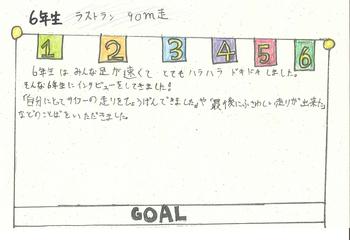 6年生 ラストラン 90m走
1 2 3 4 5 6
6年生 は みんな 足が 速くて とても ハラハラ ドキドキ しました。
そんな6年生にインタビューをしてきました!
「自分にとってサイコーの走りをひょうげんできました」や「最後にふさわしい走りが出来た」
などのことばを いただきました。
GOAL